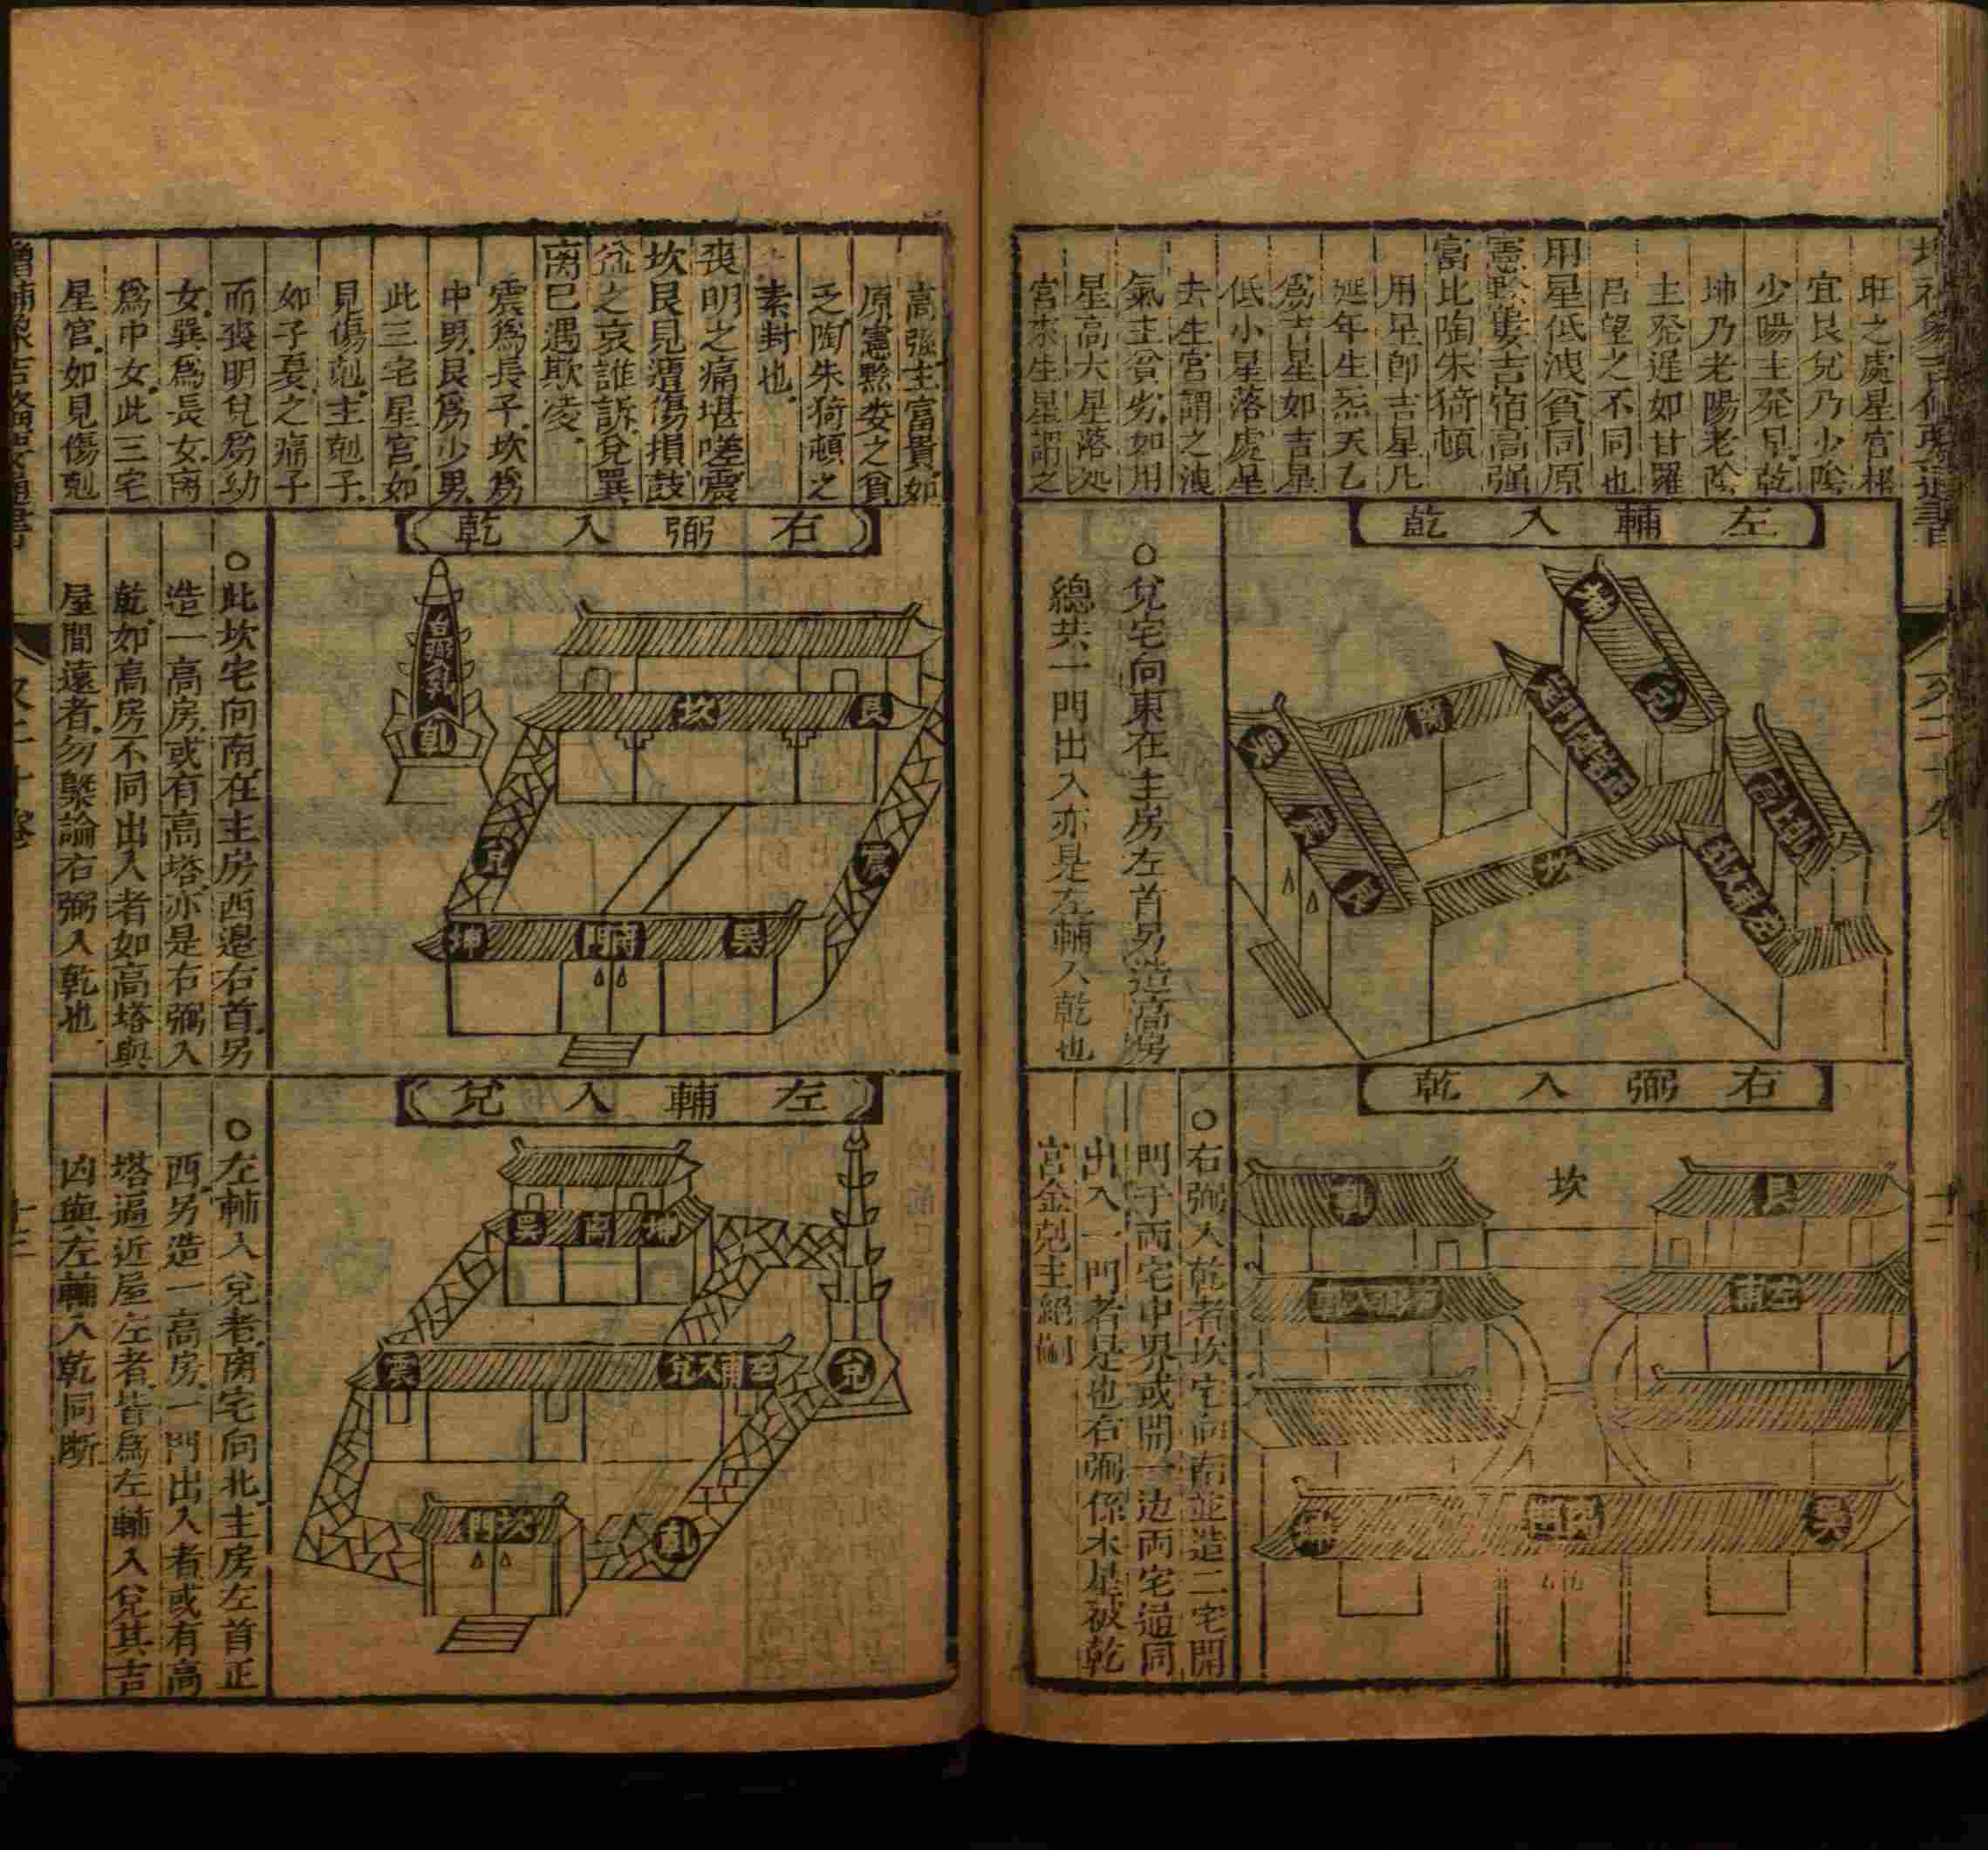 旺之處星官相
宜艮兌乃少陰
少陽主発早乾
坤乃老陽老陰
主発遅如甘羅
呂望之不同也
用星低洩貧同原
憲黔婁吉宿高强
富比陶朱猗頓
用星卽吉星凡
延年生炁天乙
為吉星如吉星
低小星落處星
去生宮謂之洩
氣主貧劣如用
星高大星落処
宮來生星謂之
左輔入乾
○兌宅向東在主房左首另造高房
總共一門出入亦是左輔入乾也
兌
離
巽
震
艮
坎
右弼入乾
坎
艮
左甫
巽
○右弼入乾者坎宅向南並造二宅開
門于兩宅中界或開一边両宅通同
出入一門者是也右弼係水星被乾
宮金尅主絕嗣
高强主富貴如
原憲黔娄之貧
乏陶朱猗頓之
素封也
喪明之痛堪嗟震
坎艮見遭傷損鼓
盆之哀誰訴兌巽
离已遇欺凌
震為長子坎為
中男艮爲少男
此三宅星宮如
見傷尅主尅子
如子夏之痛子
而喪明兌爲幼
女巽爲長女离
爲中女此三宅
星官如見傷尅
右弼入乾
坎
艮
乾
兌
震
坤
門
巽
○此坎宅向南在主房西邉右首另
造一高房或有高塔亦是右弼入
乾如高房不同出入者如高塔與
屋間遠者勿槩論右弼入乾也
左輔入兌
巽
离
坤
左甫入兌
兌
坎門
乹
○左輔入兌者离宅向北主房左首正
西另造一高房一門出入者或有高
塔逼近屋左者皆爲左輔入兌其吉
凶與左輔入乾同断